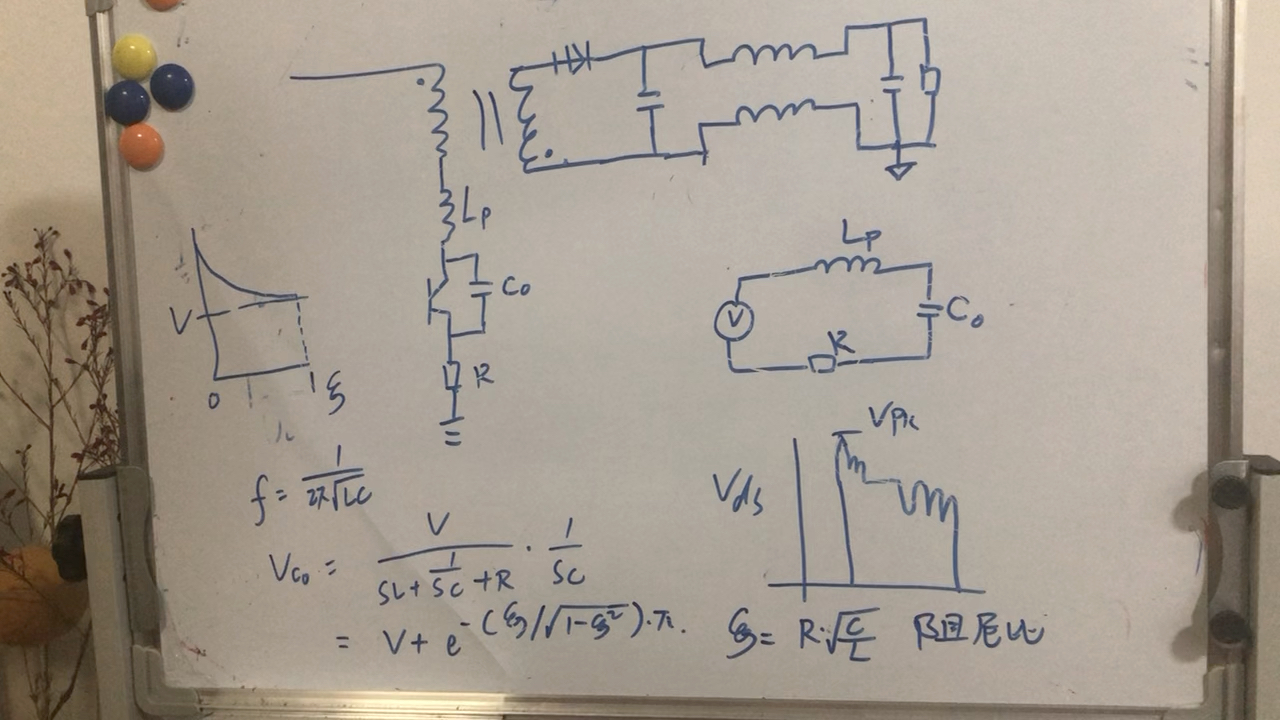 Lp
Co
R
V
0
1
ξ
Lp
V
Co
R
Vpk
Vds
f = 1/2π√LC
Vco = V/(SL+1/SC+R) · 1/SC
= V + e^-(ξ/√1-ξ²)·π.
ξ = R·√C/L 阻尼比